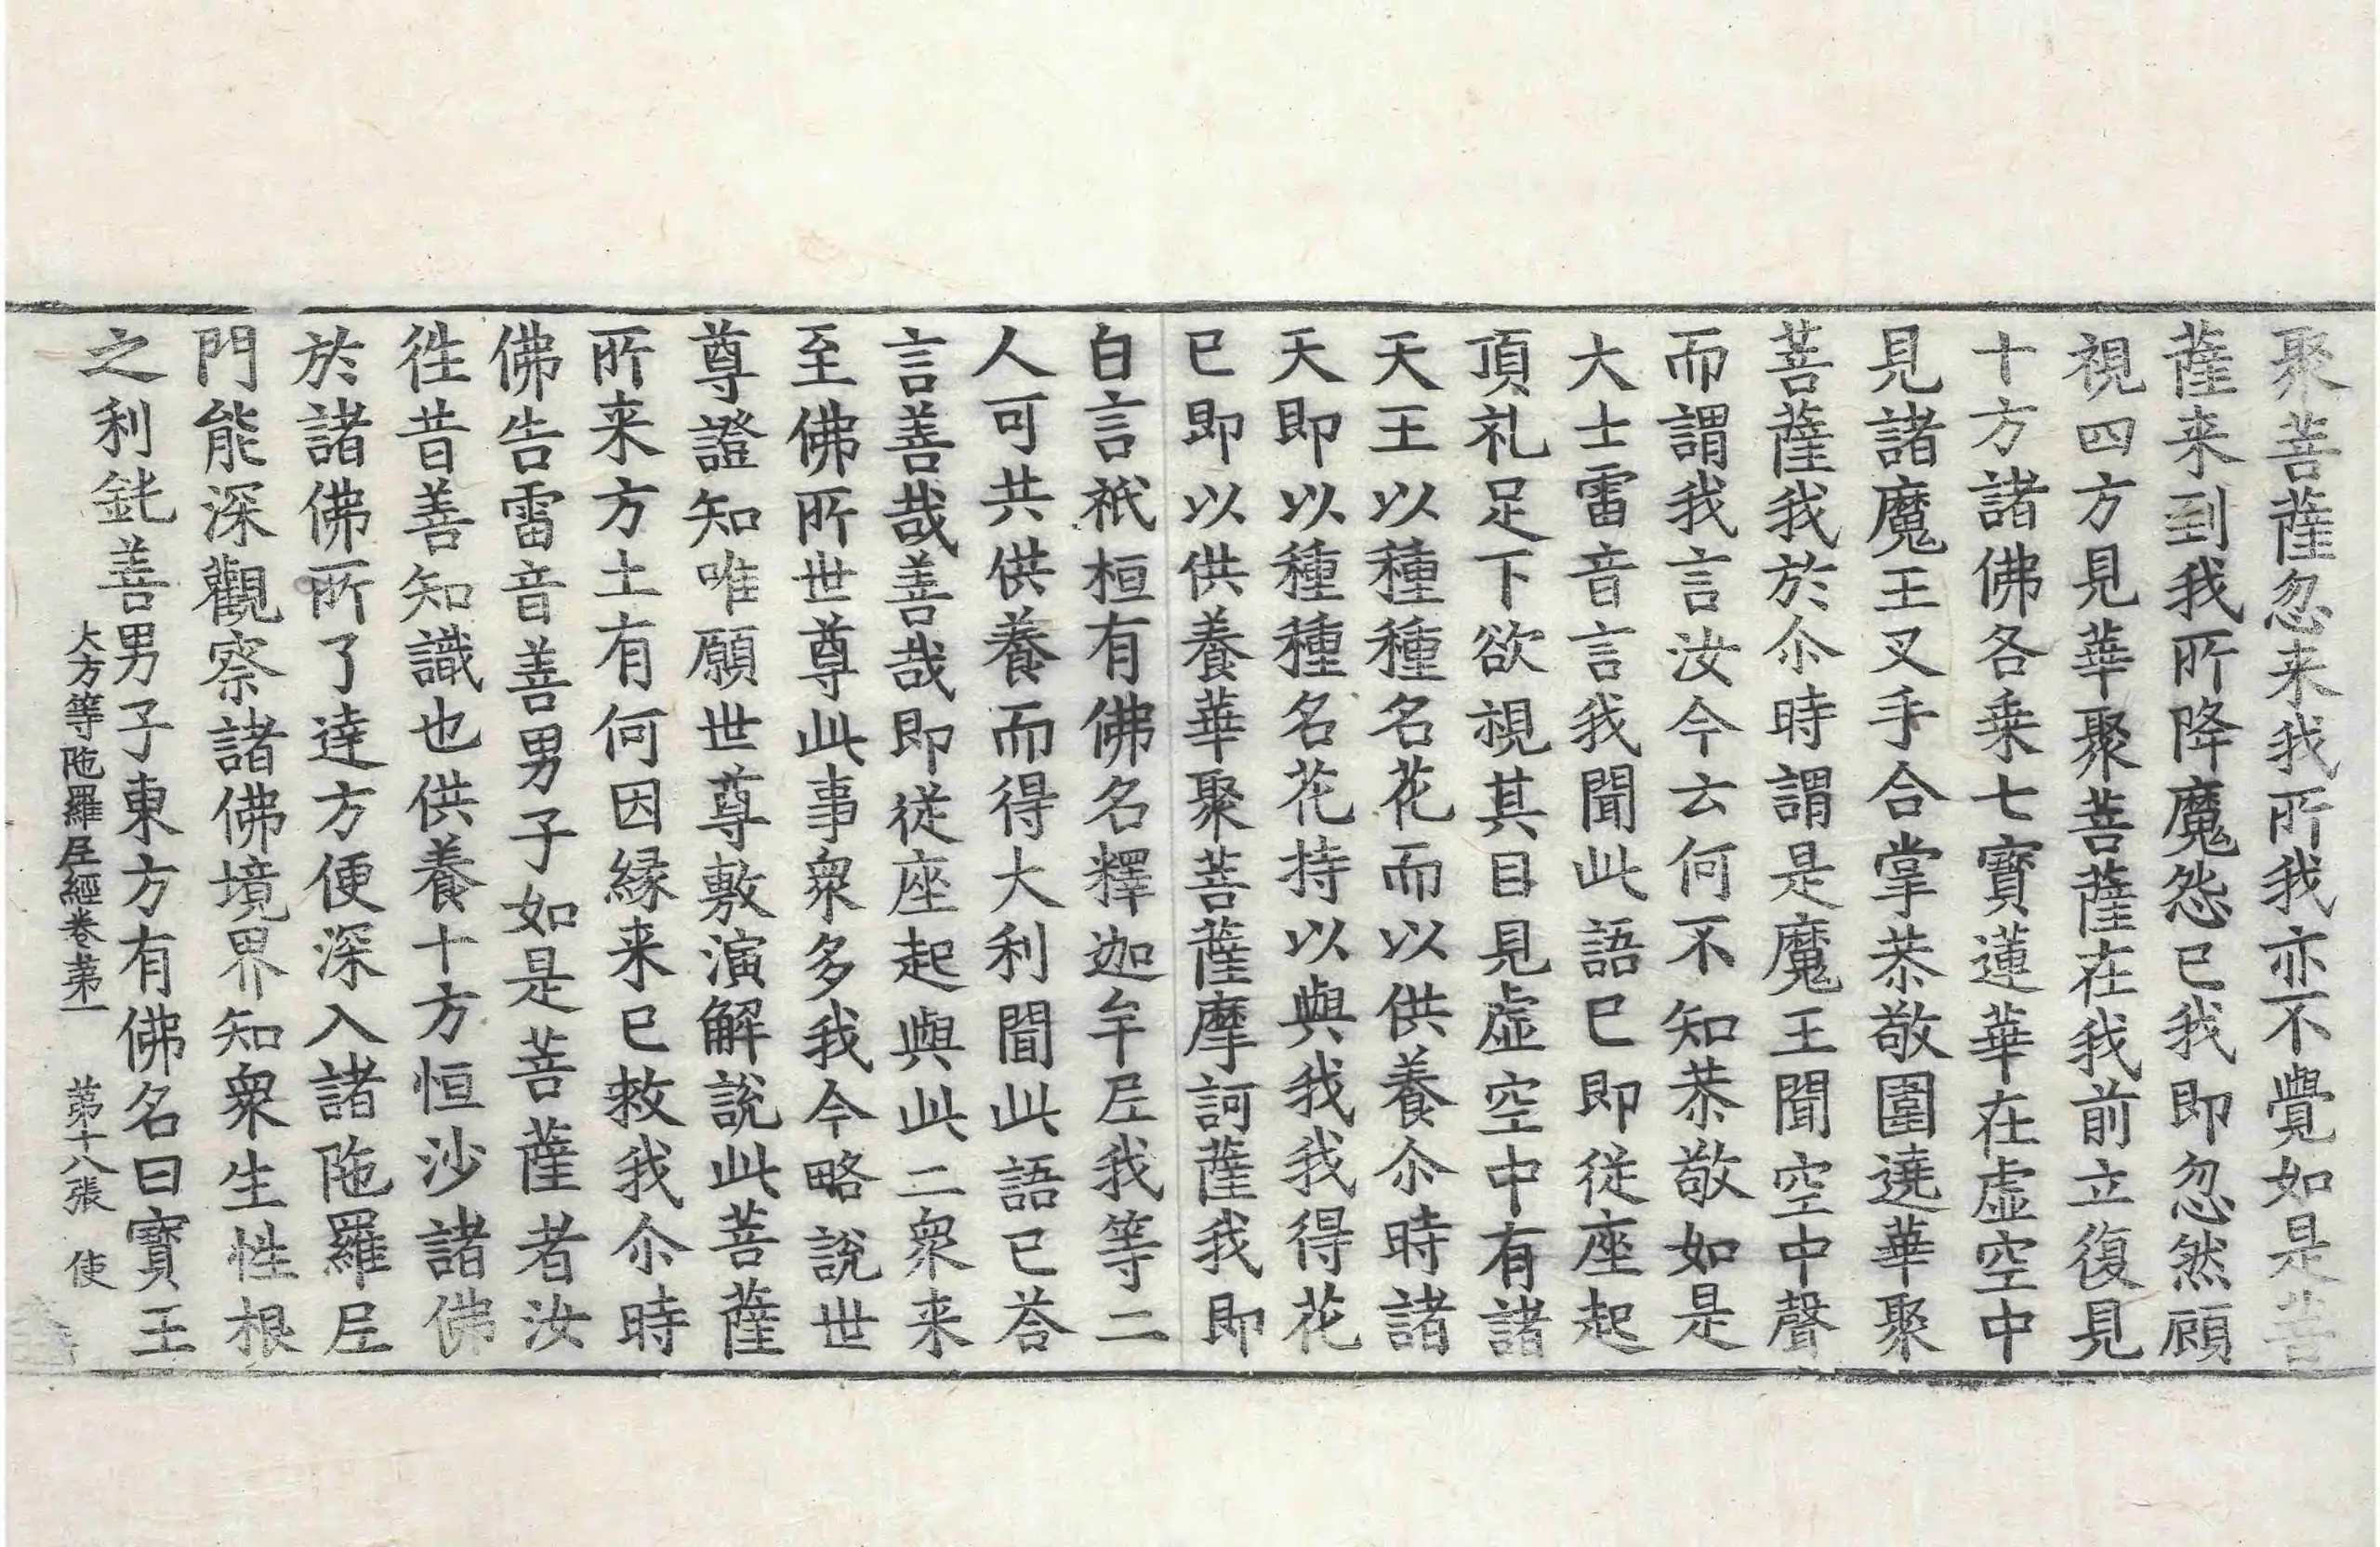 聚菩薩忽来我所我亦不覺如是菩
薩来到我所降魔怨已我即忽然顧
視四方見華聚菩薩在我前立復見
十方諸佛各乗七寳蓮華在虚空中
見諸魔王叉手合掌恭敬圍遶華聚
菩薩我於尒時謂是魔王聞空中聲
而謂我言汝今云何不知恭敬如是
大士雷音言我聞此語已即従座起
頂礼足下欲視其目見虚空中有諸
天王以種種名花而以供養尒時諸
天即以種種名花持以與我我得花
已即以供養華聚菩薩摩訶薩我即
白言祇桓有佛名釋迦牟𡰱我等二
人可共供養而得大利聞此語已荅
言善哉善哉即従座起與此二衆来
至佛所世尊此事衆多我今略說世
尊證知唯願世尊敷演解說此菩薩
所来方土有何因緣来已救我尒時
佛告雷音善男子如是菩薩者汝
徃昔善知識也供養十方恒沙諸佛
於諸佛所了達方便深入諸陁羅𡰱
門能深觀察諸佛境界知衆生性根
之利鈍善男子東方有佛名曰寳王
大方等陁羅𡰱經卷苐一 苐十八張 使